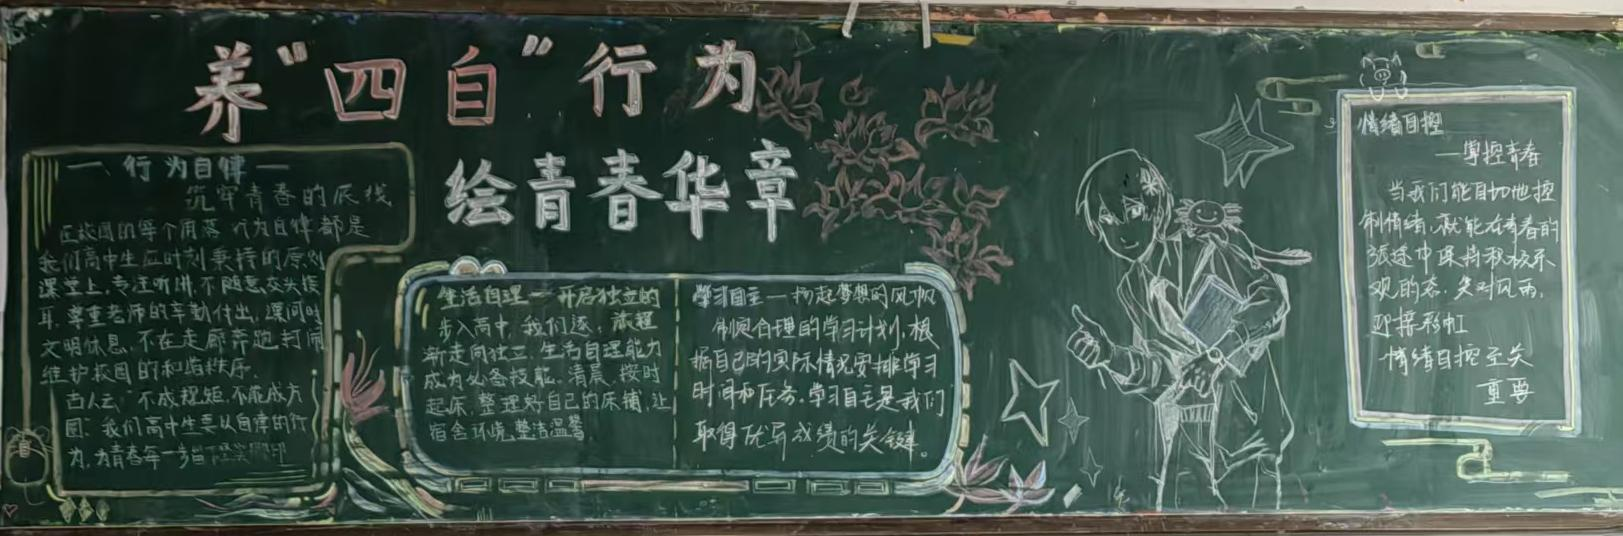 养“四自”行为
绘青春华章
一、行为自律一
筑牢青春的底线
在校园的每个角落 行为自律都是
我们高中生应时刻秉持的原则
课堂上,专注听讲,不随意交头接
耳,尊重老师的辛勤付出,课间时
文明休息,不在走廊奔跑打闹
维护校园的和谐秩序.
古人云“不成规矩,不能成方
圆”我们高中生要以自律的行
为,为青春每一步留下坚实脚印
生活自理一开启独立的
步入高中,我们逐, 旅程
渐走向独立,生活自理能力
成为必备技能.清晨,按时
起床,整理好自己的床铺,让
宿舍环境整洁温馨
学习自主一扬起梦想的风帆
制定合理的学习计划,根
据自己的实际情况安排学习
时间和任务.学习自主是我们
取得优异成绩的关键。
情绪自控
—掌控青春
当我们能自如地控
制情绪,就能在青春的
旅途中保持积极乐
观的态,笑对风雨,
迎接彩虹
情绪自控至关
重要